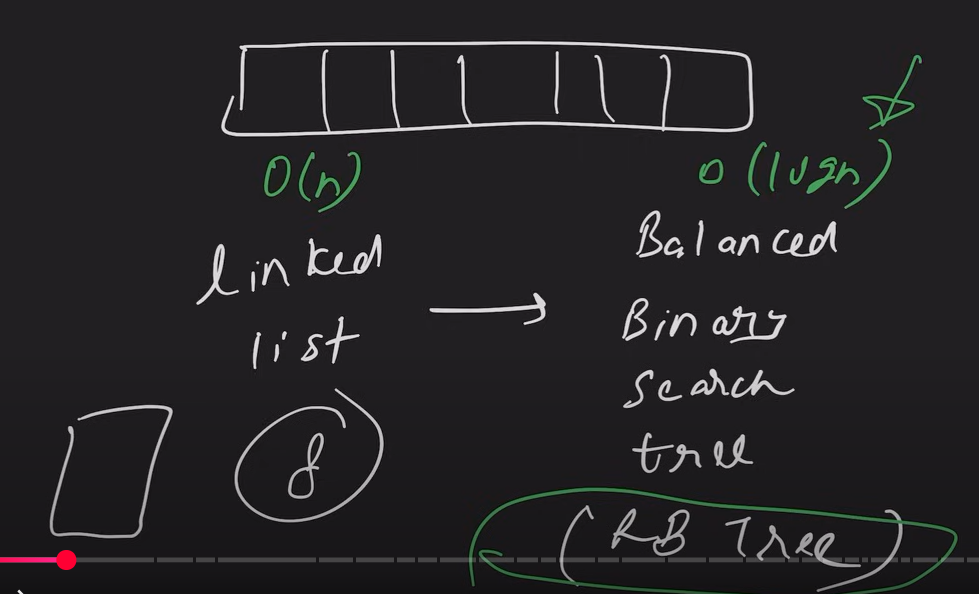 O(n)
O(logn)
linked
list
Balanced
Binary
search
tree
8
(RB Tree)